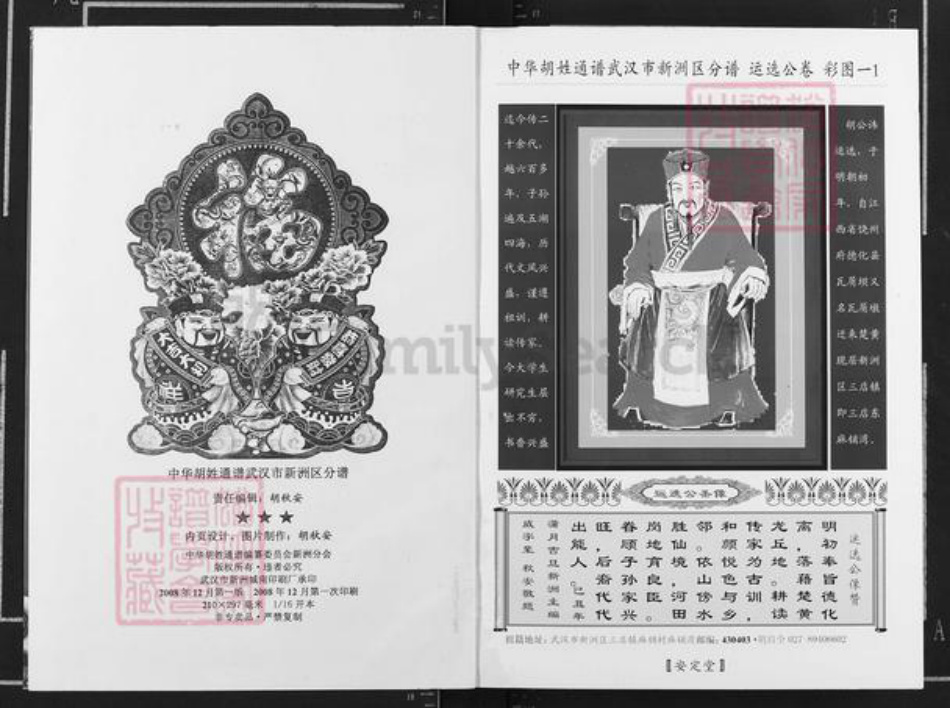 福
大吉大利
祥
吉
中华胡姓通谱武汉市新洲区分谱
责任编辑：胡秋安
★ ★ ★
内页设计、图片制作：胡秋安
中华胡姓通谱编纂委员会新洲分会
版权所有·违者必究
武汉市新洲城南印刷厂承印
2008年12月第一版 2008年12月第一次印刷
210×297毫米 1/16开本
非专卖品·严禁复制
中华胡姓通谱武汉市新洲区分谱 运选公卷 彩图—1
胡公讳
运选，于
明朝初
年，自江
西省饶州
府德化县
瓦屑坝又
名瓦屑墩
迁来楚黄
现居新洲
区三店镇
即三店东
麻铺湾。
迄今传二
十余代，
越六百多
年，子孙
遍及五湖
四海，历
代文风兴
盛，谨遵
祖训，耕
读传家。
今大学生
研究生层
出不穷，
书香兴盛
运选公圣像
运选公像赞
明初奉旨德化
离落籍楚黄
龙丘，为耕读
传家古训乡，
和颜悦色与
邻。依山傍水
胜仙境良河田
岗地育臣
眷顾后孙家兴
旺，裔代代
出能人。
己丑年
蒲月吉旦新洲主编
咸宇氏秋安敬题
祖籍地址：武汉市新洲区三店镇麻铺村麻铺湾 邮编：430403
【安定堂】